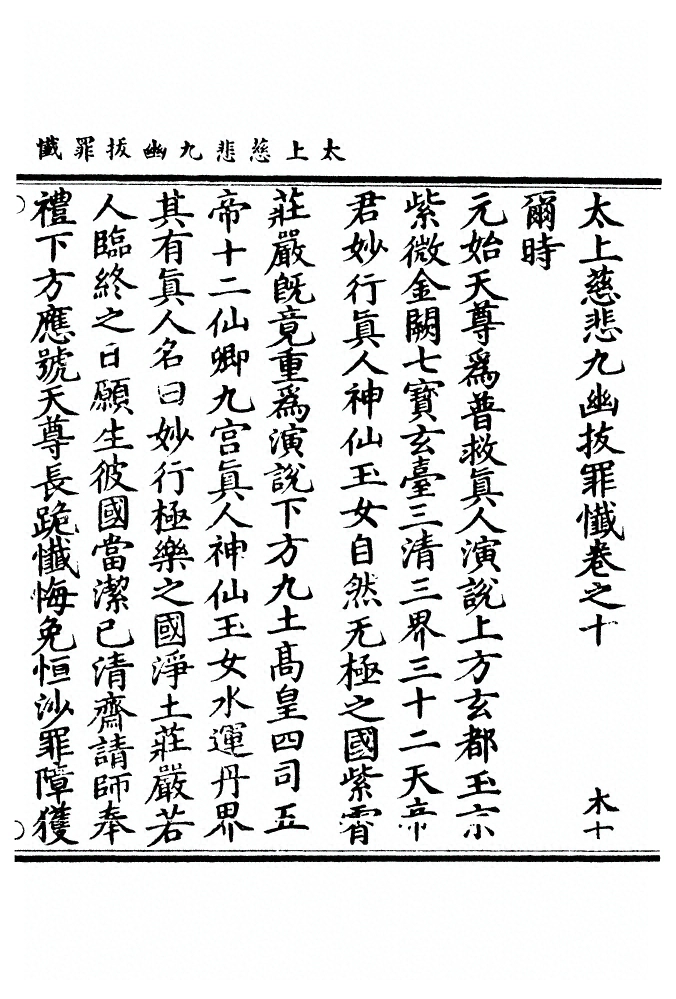 太上慈悲九幽拔罪懺
太上慈悲九幽拔罪懺卷之十 木十
爾時
元始天尊爲普救眞人演說上方玄都玉京
紫微金闕七寶玄臺三清三界三十二天帝
君妙行眞人神仙玉女自然无極之國紫霄
莊嚴旣竟重爲演說下方九土高皇四司五
帝十二仙卿九宫眞人神仙玉女水運丹界
其有眞人名曰妙行極樂之國淨土莊嚴若
人臨終之日願生彼國當潔已清齋請師奉
禮下方應號天尊長跪懺悔免恒沙罪障獲